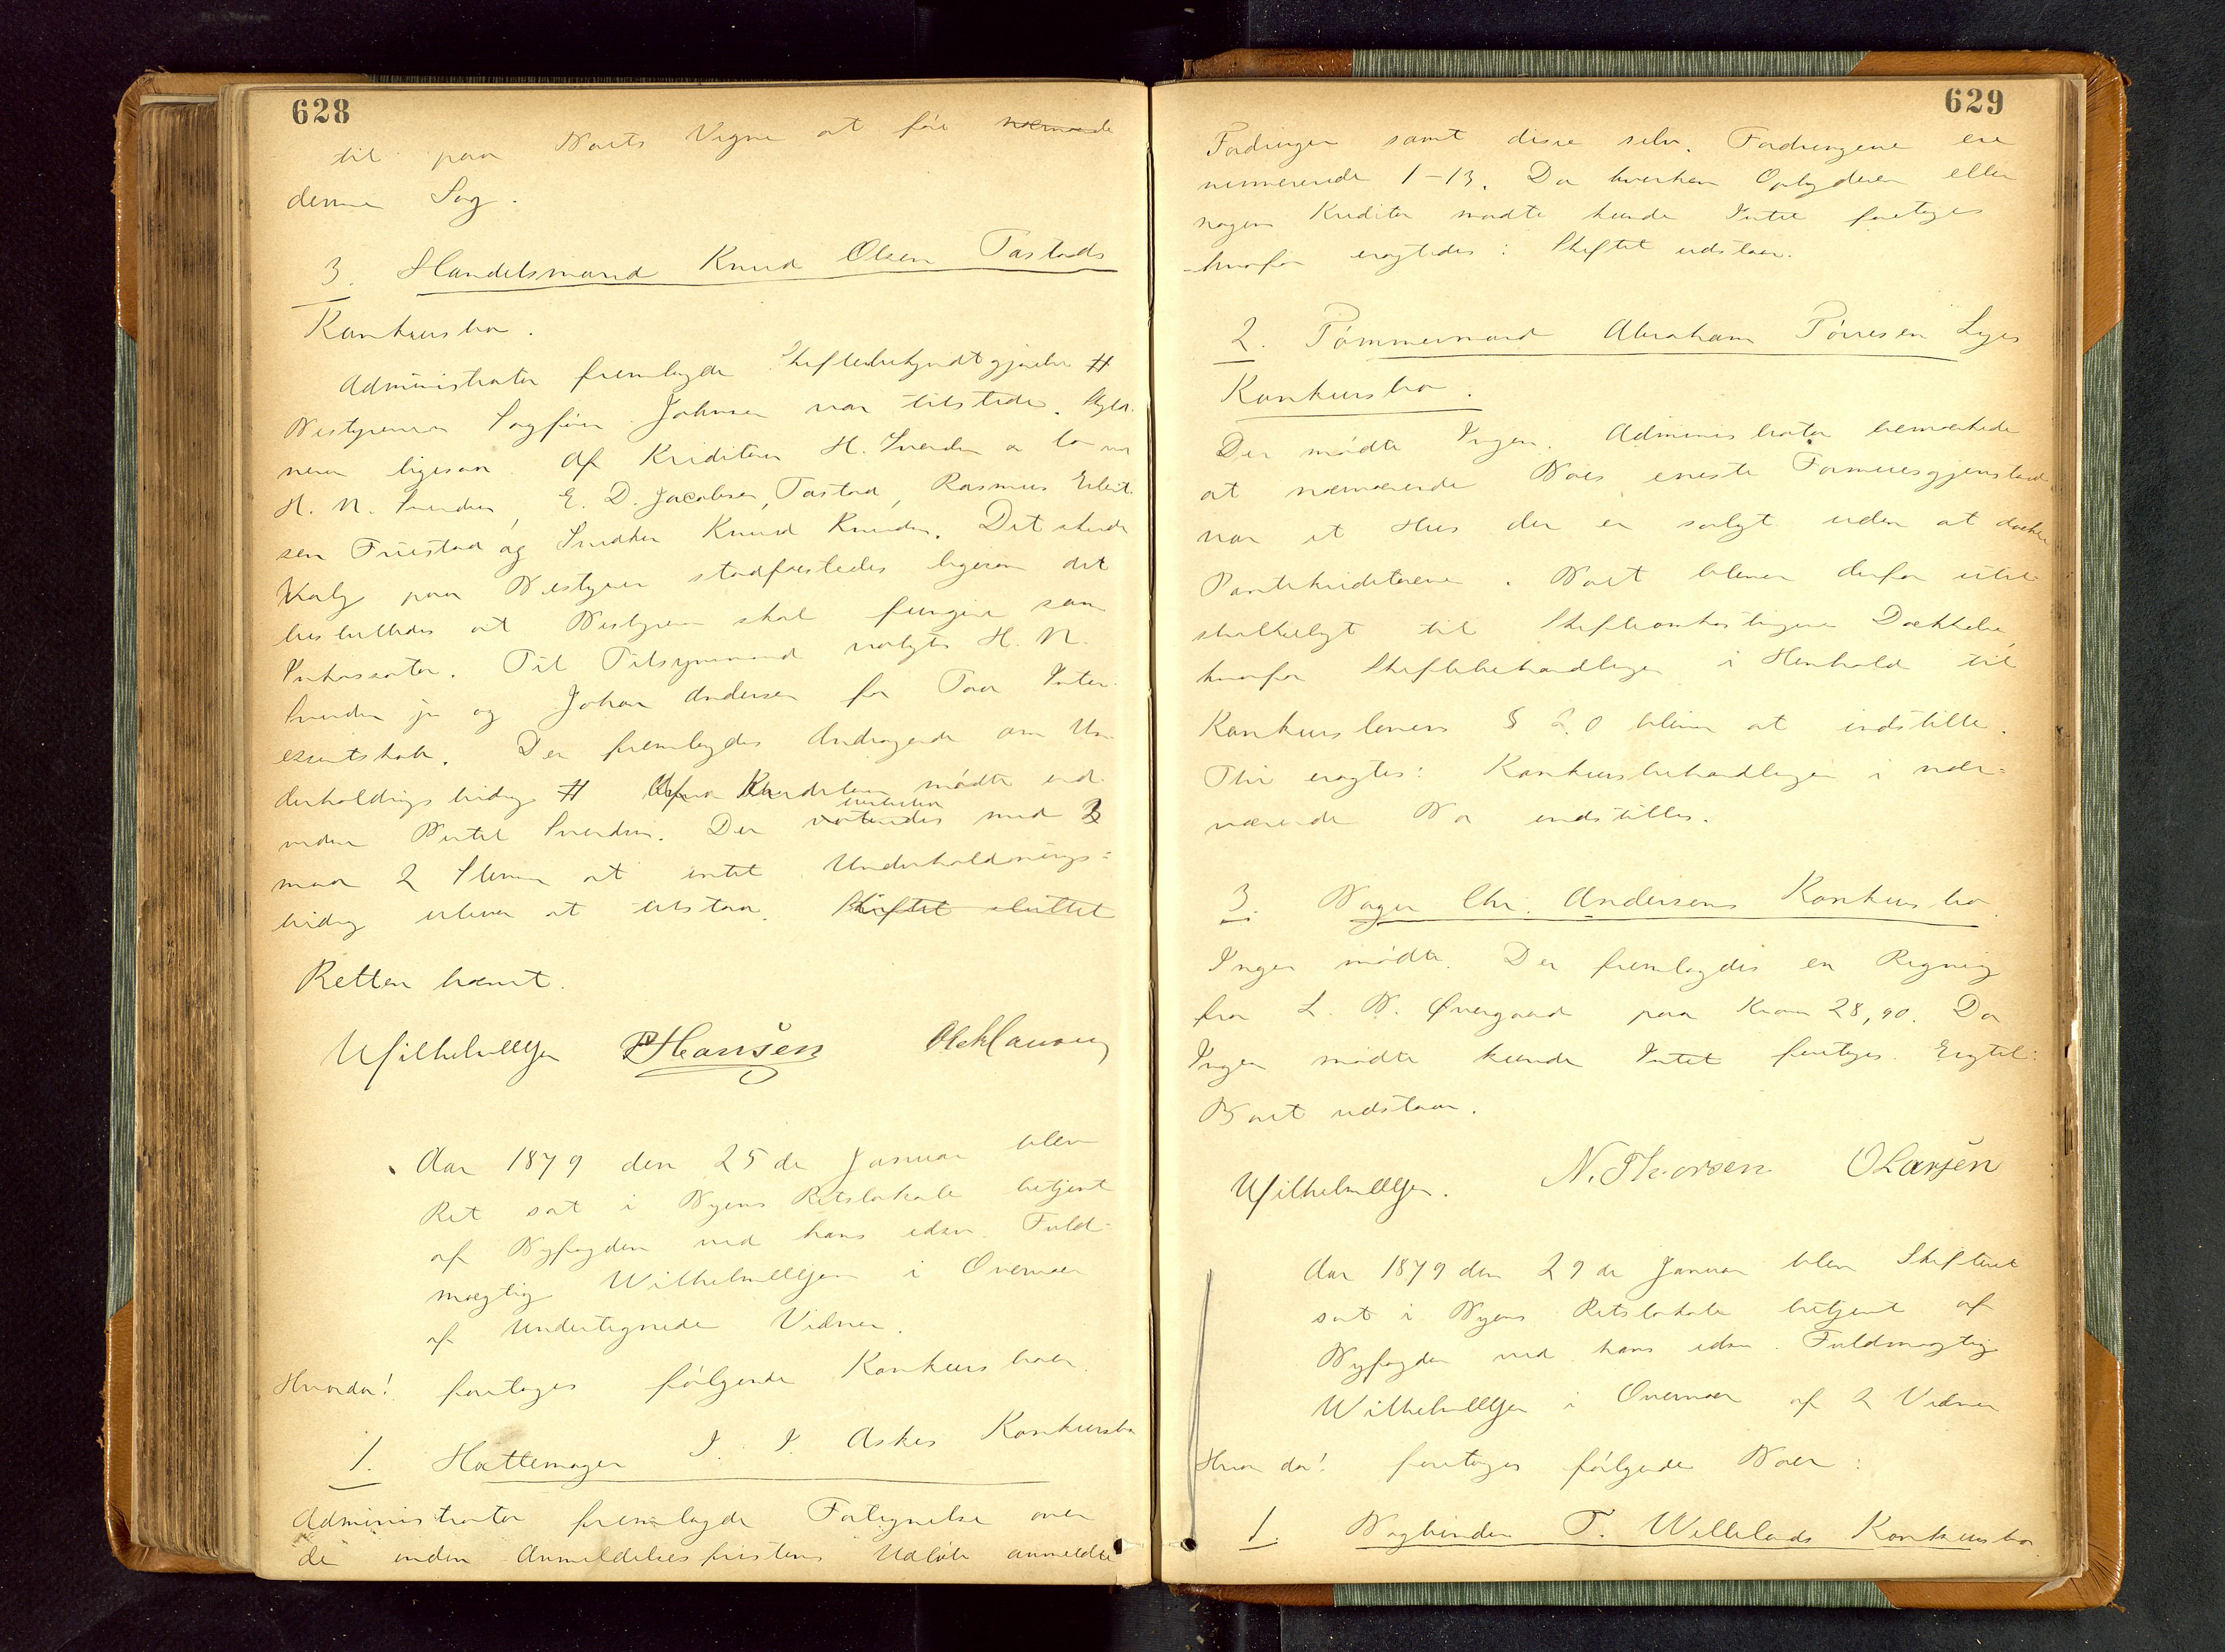 628
til paa Boets Vegne at före nærværende
denne Sag.
3. Handelsmand Knud Olsen Tastads
Konkursbo.
Administrator fremlagde Skiftebekjendtgjörelse #
Bestyreren Sagförer Johnsen var tilstede. Skyld-
neren ligesaa. Af Kreditorer H. Svendsen
H. N. Svendsen, E. D. Jacobsen, Tastad, Rasmus
sen Friestad og Snedker Knud Knudsen. Det skede
Valg paa Bestyrer stadfæstedes ligesom det
besluttedes at Bestyreren skal fungere som
Inkassator. Til Tilsynsmænd valgtes H. N.
Svendsen jr og Johan Andersen for Paa Inter-
essentskab. Der fremlagdes Andragende om Un-
derholdningsbidrag # Af Kreditorer mödte end-
videre Bertel Svendsen. Der med 3
mod 2 Stemmer at intet Underholdnings-
bidrag bliver at tilstaa. Skiftet sluttet
Retten hævet.
Wilhelm Ellefsen P Hansen Ole Hansen
Aar 1879 den 25de Januar blev
Ret sat i Byens Retslokale betjent
af Byfogden ved hans edsv. Fuld-
mægtig Wilhelm Ellefsen i Overvær
af undertegnede Vidner.
Hvorda! foretoges fölgende Konkursboer.
1. Hattemager I. I. Askes Konkursbo
Administrator fremlagde Fortegnelse over
de inden Anmeldelsesfristens Udlöb anmeldte
629
Fordringer samt disse selv. Fordringerne ere
nummererede 1-13. Da hverken Opbyderen eller
nogen Kreditor mödte kunde Intet foretages
hvorfor eragtedes: Skiftet udstaar.
2. Tömmermand Abraham Törresen Lyes
Konkursbo.
Der mödte Ingen. Administrator bemærkede
at nærværende Boes eneste Formuesgjenstand
var et Hus der er solgt uden at dække
Pantekreditorerne. Boet bliver derfor util-
strækkeligt til Skifteomkostningernes Dækkelse,
hvorfor Skiftebehandlingen i Henhold til
Konkurslovens § 20 bliver at indstille.
Thi eragtes: Konkursbehandlingen i nær-
værende Bo indstilles.
3. Bager Chr. Andersens Konkursbo.
Ingen mödte. Der fremlagdes en Regning
fra L. B. Övergaard paa Kroner 28,90. Da
Ingen mödte kunde Intet foretages. Eragtet:
Boet udstaar.
Wilhelm Ellefsen. N. Thorsen O Larsen
Aar 1879 den 29de Januar blev Skifteret
sat i Byens Retslokale betjent af
Byfogden ved hans edsv. Fuldmægtig
Wilhelm Ellefsen i Overvær af 2 Vidner
Hvor da! foretoges fölgende Boer:
1. Bogbinder T. Wellelands Konkursbo